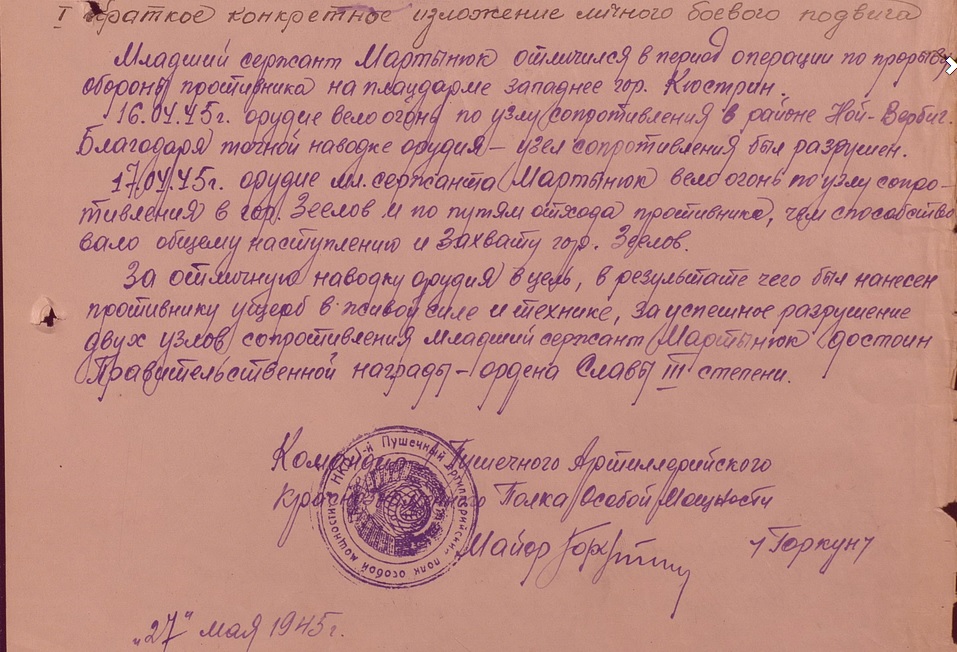 I Краткое конкретное изложение личного боевого подвига
Младший сержант Мартынюк отличился в период операции по прорыву
обороны противника на плацдарме западнее гор. Кюстрин.
16.04.45г. орудие вело огонь по узлу сопротивления в районе Ной-Вербиг.
Благодаря точной наводке орудия – узел сопротивления был разрушен.
17.04.45г. орудие мл. сержанта Мартынюк вело огонь по узлу сопро-
тивления в гор. Зеелов и по путям отхода противника, чем способство
вало общему наступлению и захвату гор. Зеелов.
За отличную наводку орудия в цель, в результате чего был нанесен
противнику ущерб в живой силе и технике, за успешное разрушение
двух узлов сопротивления младший сержант Мартынюк достоин
Правительственной награды – ордена Славы III степени.
Командир Пушечного Артиллерийского
Полка Особой Мощности
Майор /Горкун/
Пушечный артиллерийский полк особой мощности НКО
"27" мая 1945г.